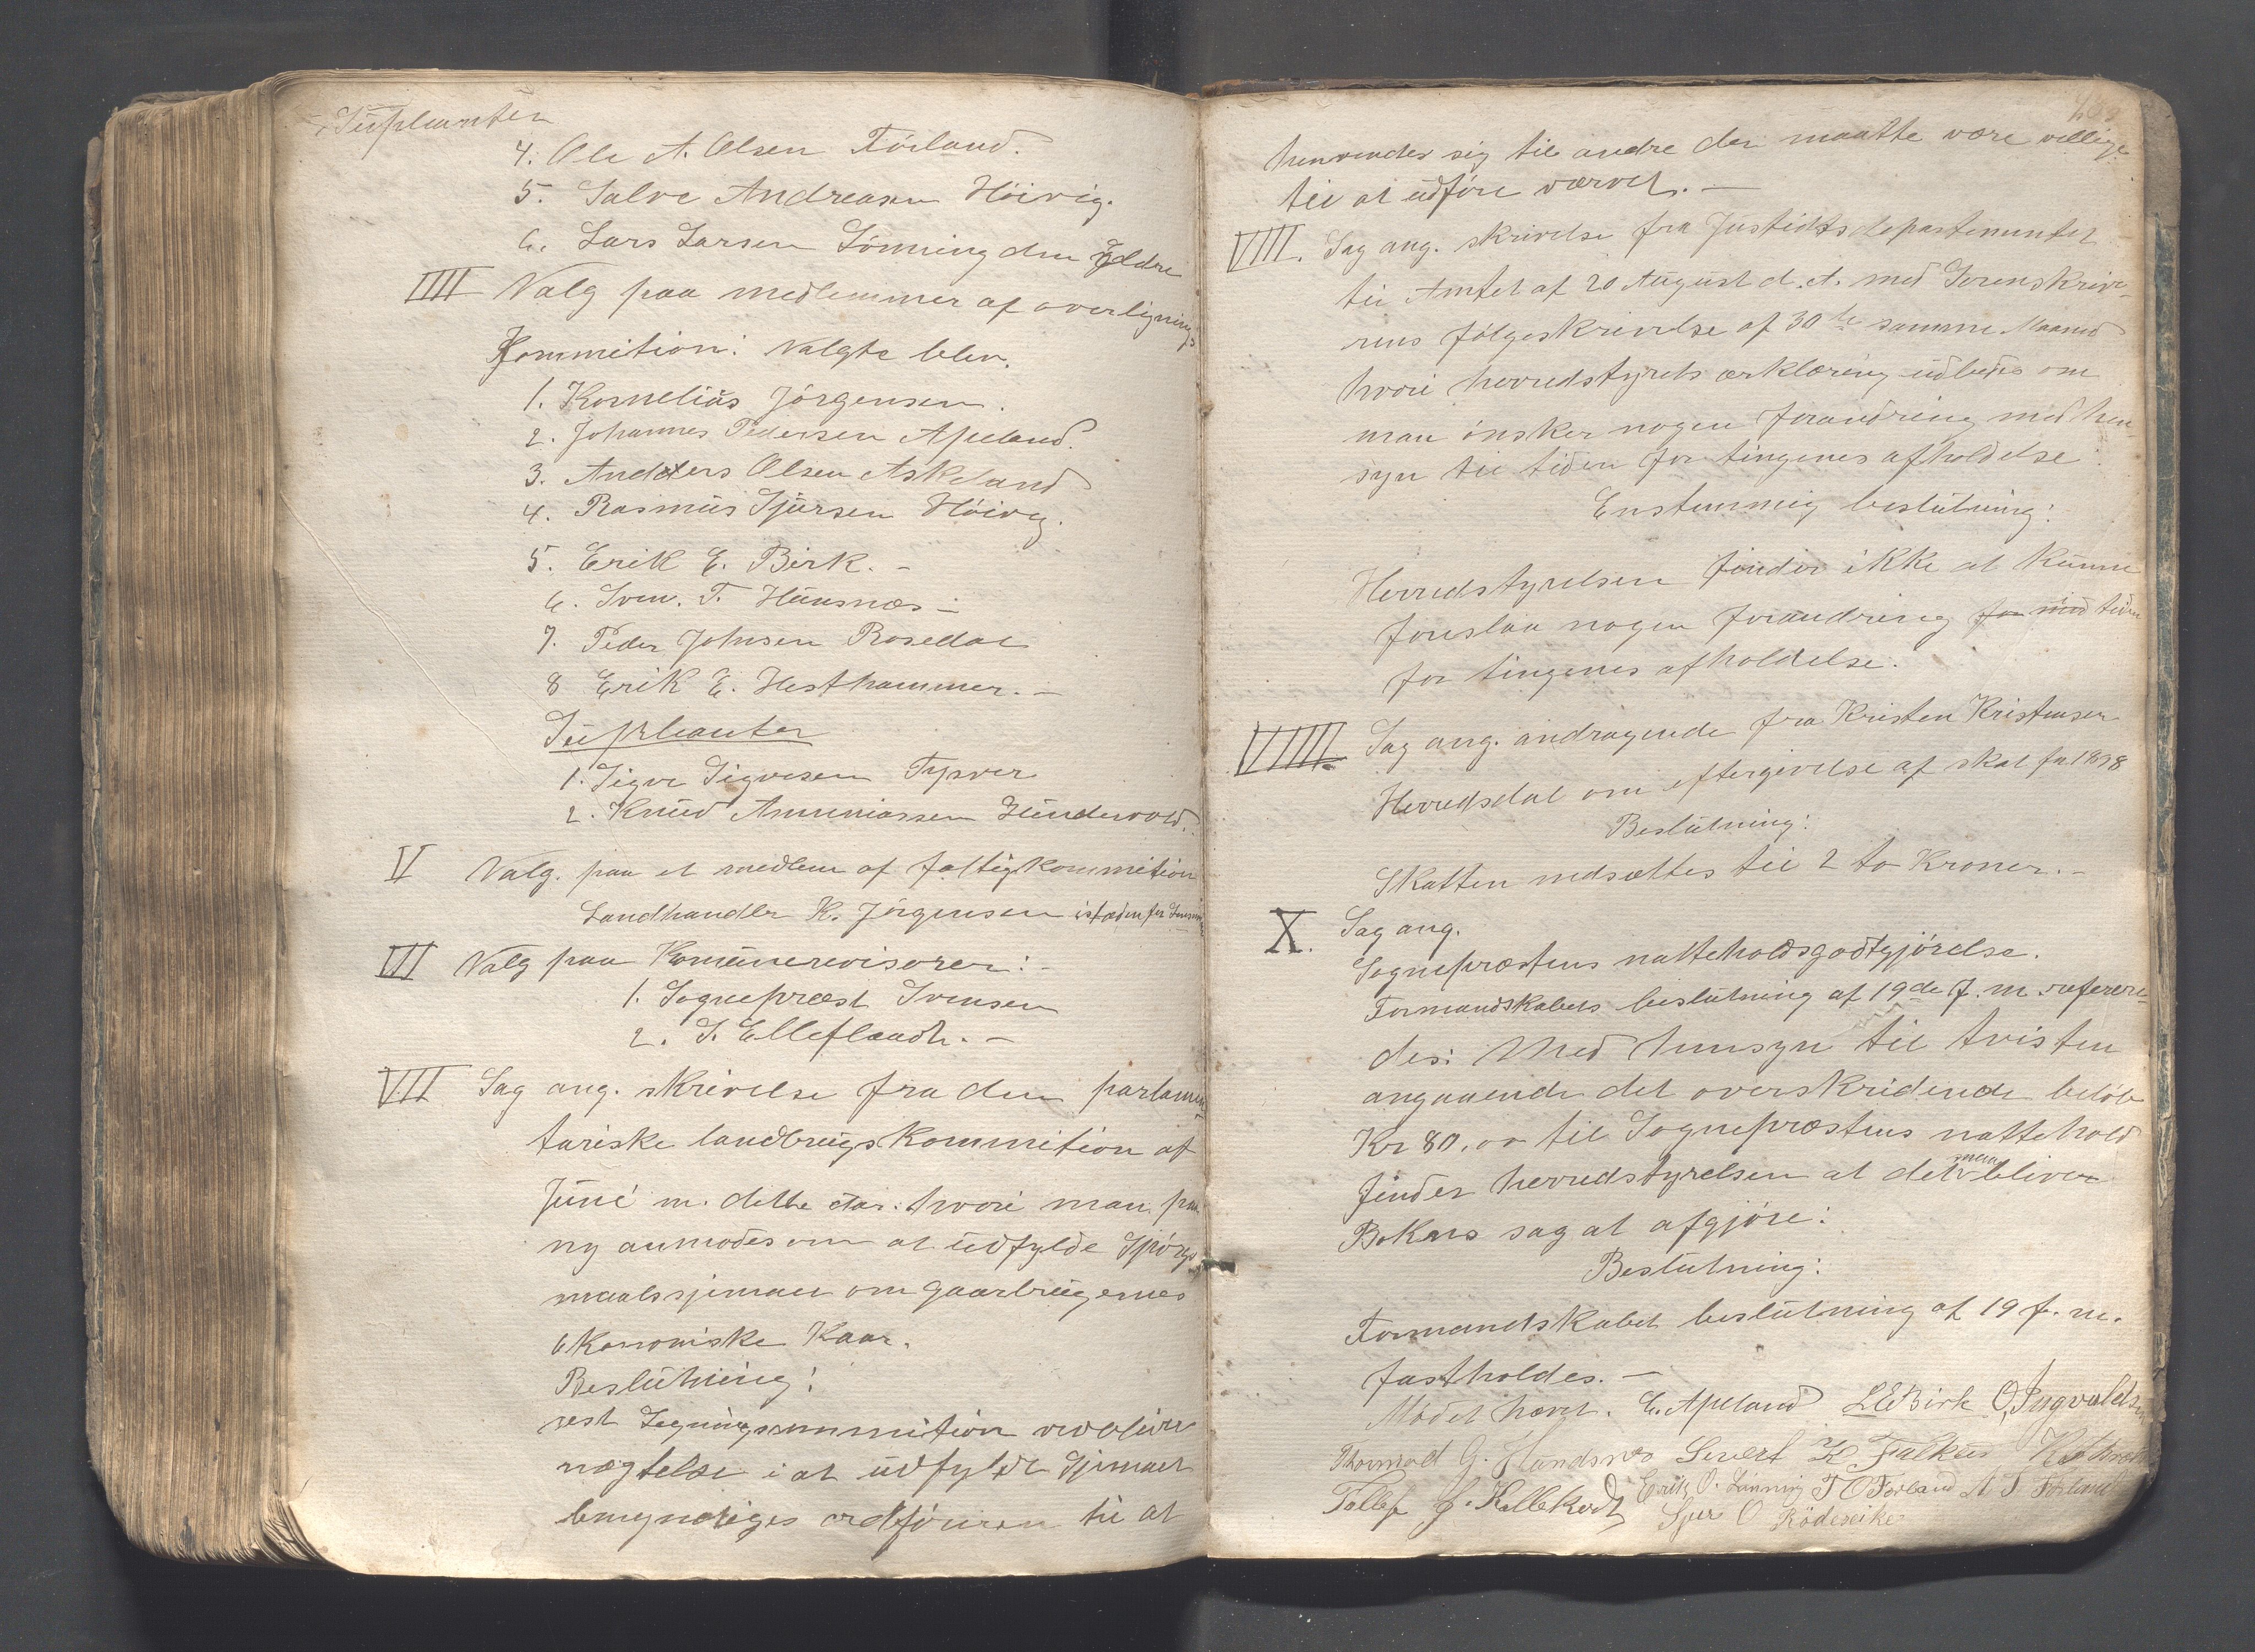 Suplanter
4. Ole A. Olsen Förland.
5. Salve Andreasen Höivig.
6. Lars Larsen Lönning den yldre
IIII Valg paa medlemmer af overlignings
Kommition: Valgte blev.
1. Kornelius Jörgensen.
2. Johannes Pedersen Apeland.
3. Anders Olsen Askeland
4. Rasmus Sjursen Höivig.
5. Erik E. Birk. -
6. Sven. T. Hausnæs -
7. Peder Johnsen Rosedal
8 Erik E. Hesthammer. -
Suplanter
1. Sigve Sigvesen Tysver
2. Knud Ammiassen Hindervold.
V Valg. paa et medlem af fattigkommition
Landhandler K. Jörgensen istæden for
VI Valg paa Komunerevisorer: -
1. Sognepræst Svensen
2. S. Elleflaadt. -
VII Sag ang. skrivelse fra den parlamen-
tariske landbrugskommition af
Juni m. dette aar. hvori man paa
ny anmodes om at udfylde Spörgs
maalssjemaer om gaarbrugernes
ökonomiske Kaar.
Beslutning:
nægtelse i at udfylde Sjemaet
bemyndiges ordföreren til at
henvender sig til andre der maatte være villige
til at udföre værvet. -
VIII. Sag ang. skrivelse fra Justidtsdepartementet
til Amtet af 20 August d. A. med Sorenskrive-
rens fölgeskrivelse af 30te samme Maaned
hvori herredstyrets ærklæring udbedes om
man önsker nogen forandring med hen-
syn til tiden for tingenes afholdelse.
Enstemmig beslutning:
Herredstyrelsen finder ikke at kunne
foreslaa nogen forandring for med tiden
for tingenes afholdelse.
VIIII. Sag ang. andragende fra Kristen Kristensen
Herredsdal om eftergivelse af skat for 1898
Beslutning:
Skatten nedsættes til 2 to Kroner. -
X. Sag ang.
Sognepræstens natteholdsgodtgjörelse.
Formandskabets beslutning af 19de f. m. referere-
des: Med hensyn til tvisten
angaaende det overskridende belöb
Kr 80,00 til Sognepræstens nattehold
finder herredstyrelsen at det bliver
sag at afgjöre:
Beslutning:
Formandskabet beslutning af 19 f. m.
fastholdes. -
Mödet hævet. E. Apeland LEBirk O, Ingvaldsen
Thormod G. Hundsnes Sivert K Falkeid
Tollef J. Kallekodt Erik O. Lönning T O Förland A T Förland
Sjur O Rödseike